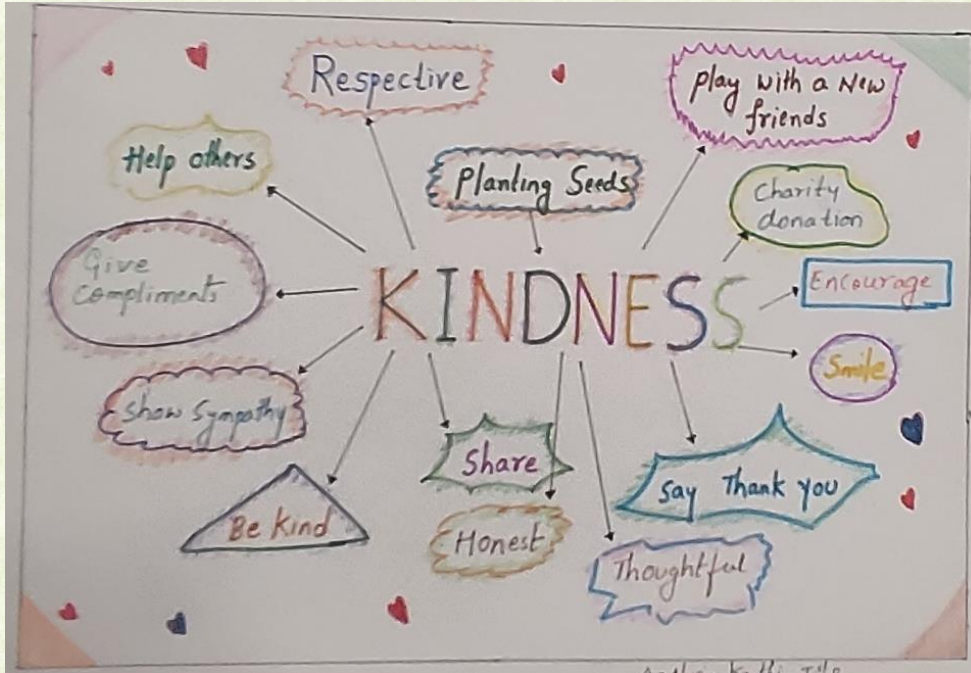 Respective
Play with a New
friends
Help others
Planting Seeds
Charity
donation
Give
Compliments
KINDNESS
Encourage
Smile
Show Sympathy
Share
Say Thank you
Be Kind
Honest
Thoughtful